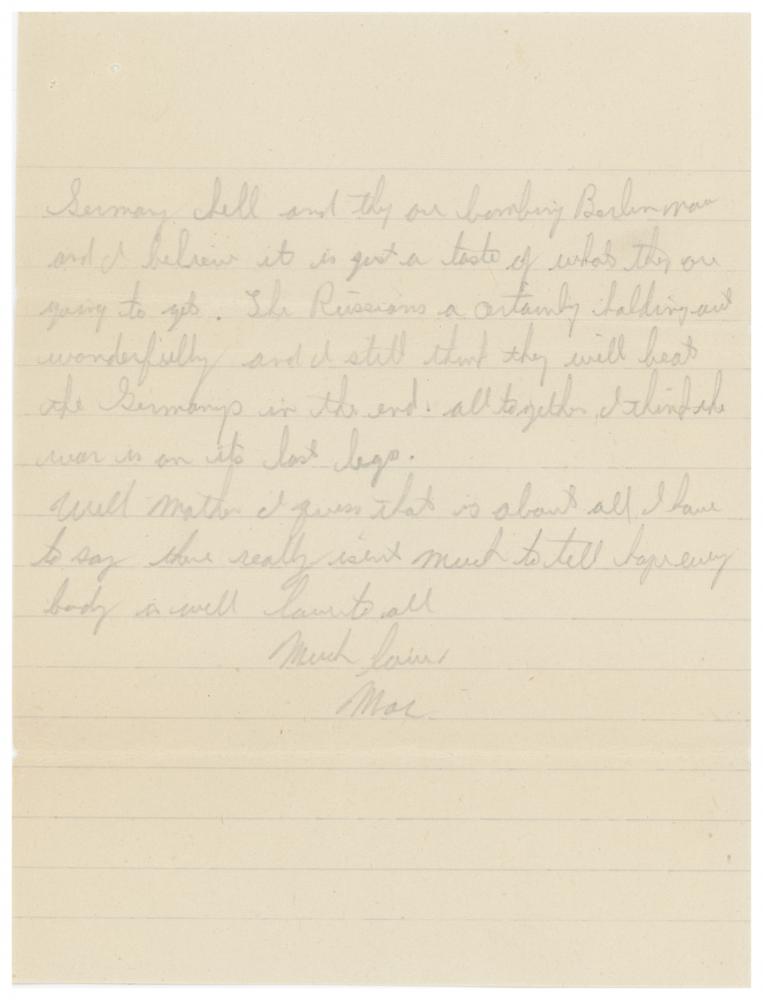 Germany hell and they are bombing Berlin now
and I believe it is just a taste of what they are
going to get. The Russians a certainly holding out
wonderfully and I still think they will beat
the Germanys in the end. all together I think the
war is on its last legs.
Well Mother I guess that is about all I have
to say there really isent much to tell hope every
body is well love to all
Much love
Mac.